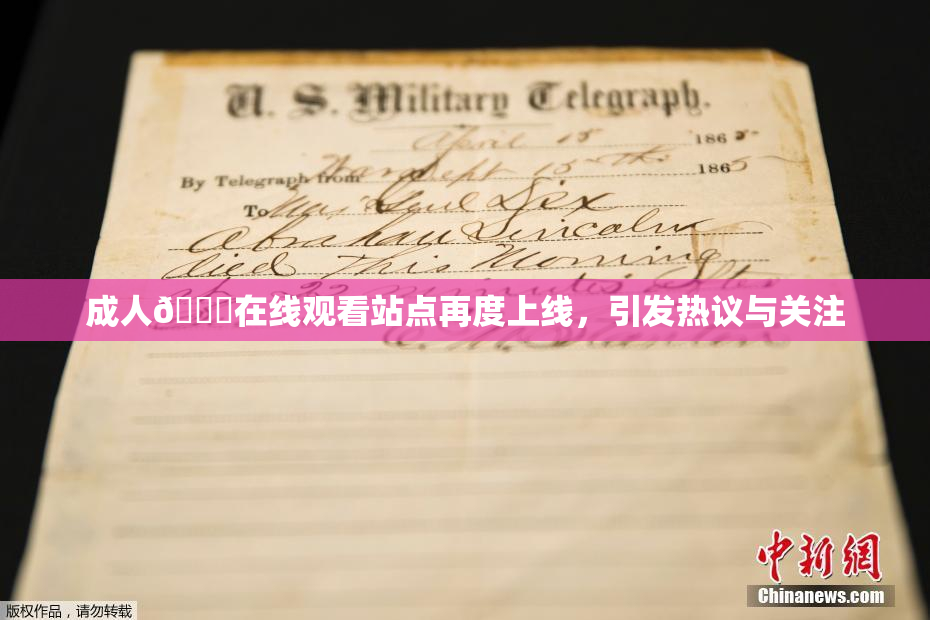 U. S. Military Telegraph.
April 15 1865
By Telegraph from War Dept 15th 1865
To Maj Genl Dix
Abraham Lincoln
died This Morning
22 minutes after
成人ð在线观看站点再度上线，引发热议与关注
E. M. Stanton
中新网
Chinanews.com
版权作品，请勿转载